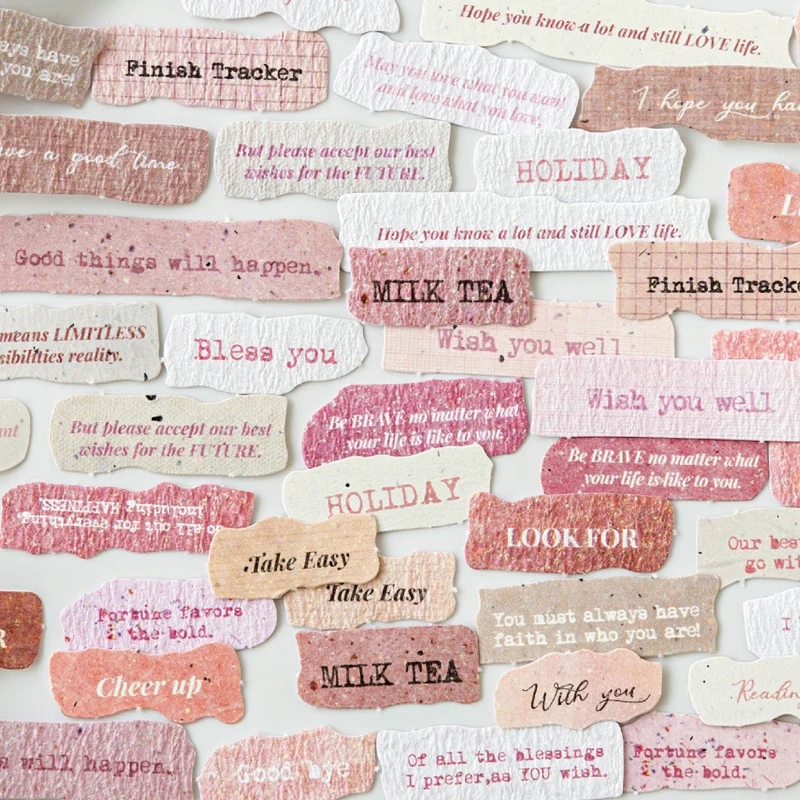 Hope you know a lot and still LOVE life.
ays have
you are!
Finish Tracker
May you love what you want
and love what you love.
I hope you ha
ve a good time.
But please accept our best
wishes for the FUTURE.
HOLIDAY
L
Hope you know a lot and still LOVE life.
Good things will happen.
MILK TEA
Finish Tracke
means LIMITLESS
sibilities reality.
Bless you
Wish you well
Wish you well
But please accept our best
wishes for the FUTURE.
Be BRAVE no matter what
your life is like to you.
Be BRAVE no matter what
your life is like to you.
HOLIDAY
Go all out for everything,
including HAPPINESS.
LOOK FOR
Take Easy
Take Easy
Our bes
go wit
R
Fortune favors
the bold.
You must always have
faith in who you are!
I
Cheer up
MILK TEA
With you
Readin
s will happen.
Good bye
Of all the blessings
I prefer,as YOU wish.
Fortune favors
the bold.